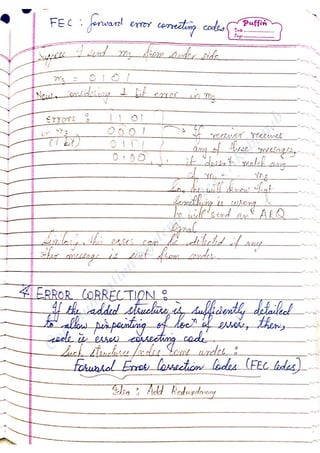 FEC : forward error correcting codes
Puffin
Suppose I send m3 from sender side
m3 = 0101
Now, considering 1 bit error in m3
Errors :
in m3
(1 bit)
1101
0001
0111
0100
If receiver receives
any of these messages,
it doesn't match any
of m1 - m3
So, he will know that
something is wrong &
he will send an ARQ
signal
Similarly, this error can be detected if any
other message is sent from sender
4. ERROR CORRECTION :
If the added structure is sufficiently detailed
to allow pinpointing of locn of error, then,
code is error correcting code.
Such structures/codes come under :
Forward Error Correction Codes (FEC Codes)
Idea : Add Redundancy